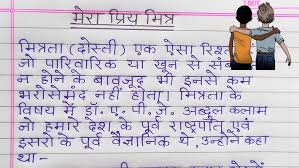 मेरा प्रिय मित्र
मित्रता (दोस्ती) एक ऐसा रिश्
जो पारिवारिक या खून से संब
न होने के बावजूद भी इनसे कम
भरोसेमंद नहीं होता। मित्रता के
विषय में डॉ. ए. पी. जे. अब्दुल कलाम
जो हमारे देश के पूर्व राष्ट्रपति एवं
इसरो के पूर्व वैज्ञानिक थे, उन्होंने कहा
था-